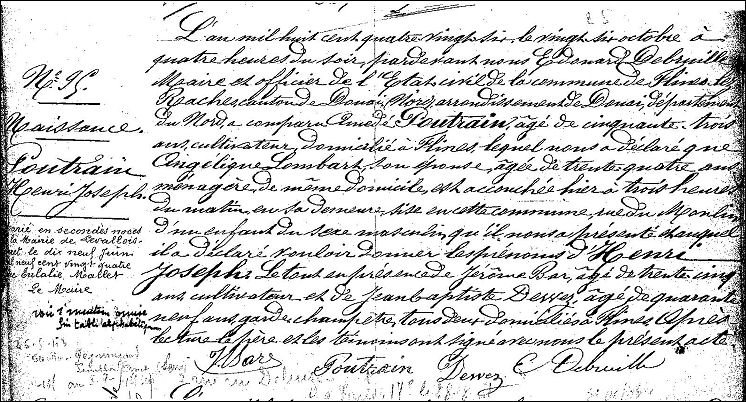 L'an mil huit cent quatre vingt six le vingt six octobre à
quatre heures du soir, pardevant nous Edouard Debruille
Maire et officier de l'Etat civil de la commune de Flines-lez
Raches, canton de Douai (Nord) arrondissement de Douai, département
du Nord, a comparu Amedé Poutrain, agé de cinquante-trois
ans, cultivateur, domicilié à Flines, lequel nous a déclaré que
Angélique Lombart, son épouse, agée de trente-quatre ans
ménagère, de même domicile, est accouchée hier à trois heures
du matin, en sa demeure, sise en cette commune, rue du Moulin
d'un enfant du sexe masculin, qu'il nous a présenté et auquel
il a déclaré vouloir donner les prénoms d'Henri
Joseph. Le tout en présence de Jérôme Bar, âgé de trente cinq
ans, cultivateur et de Jean baptiste Dewez, âgé de quarante
neuf ans, garde champêtre, tous deux domiciliés à Flines. Après
lecture le père et les témoins ont signé avec nous le présent acte
J Bar Poutrain Dewez E Debruille
N° 95.
Naissance.
Poutrain
Henri Joseph.
Marié en secondes noces
la Mairie de Levallois-
le dix neuf Juin
neuf cent vingt quatre
Eulalie, Mallet
Le Maire